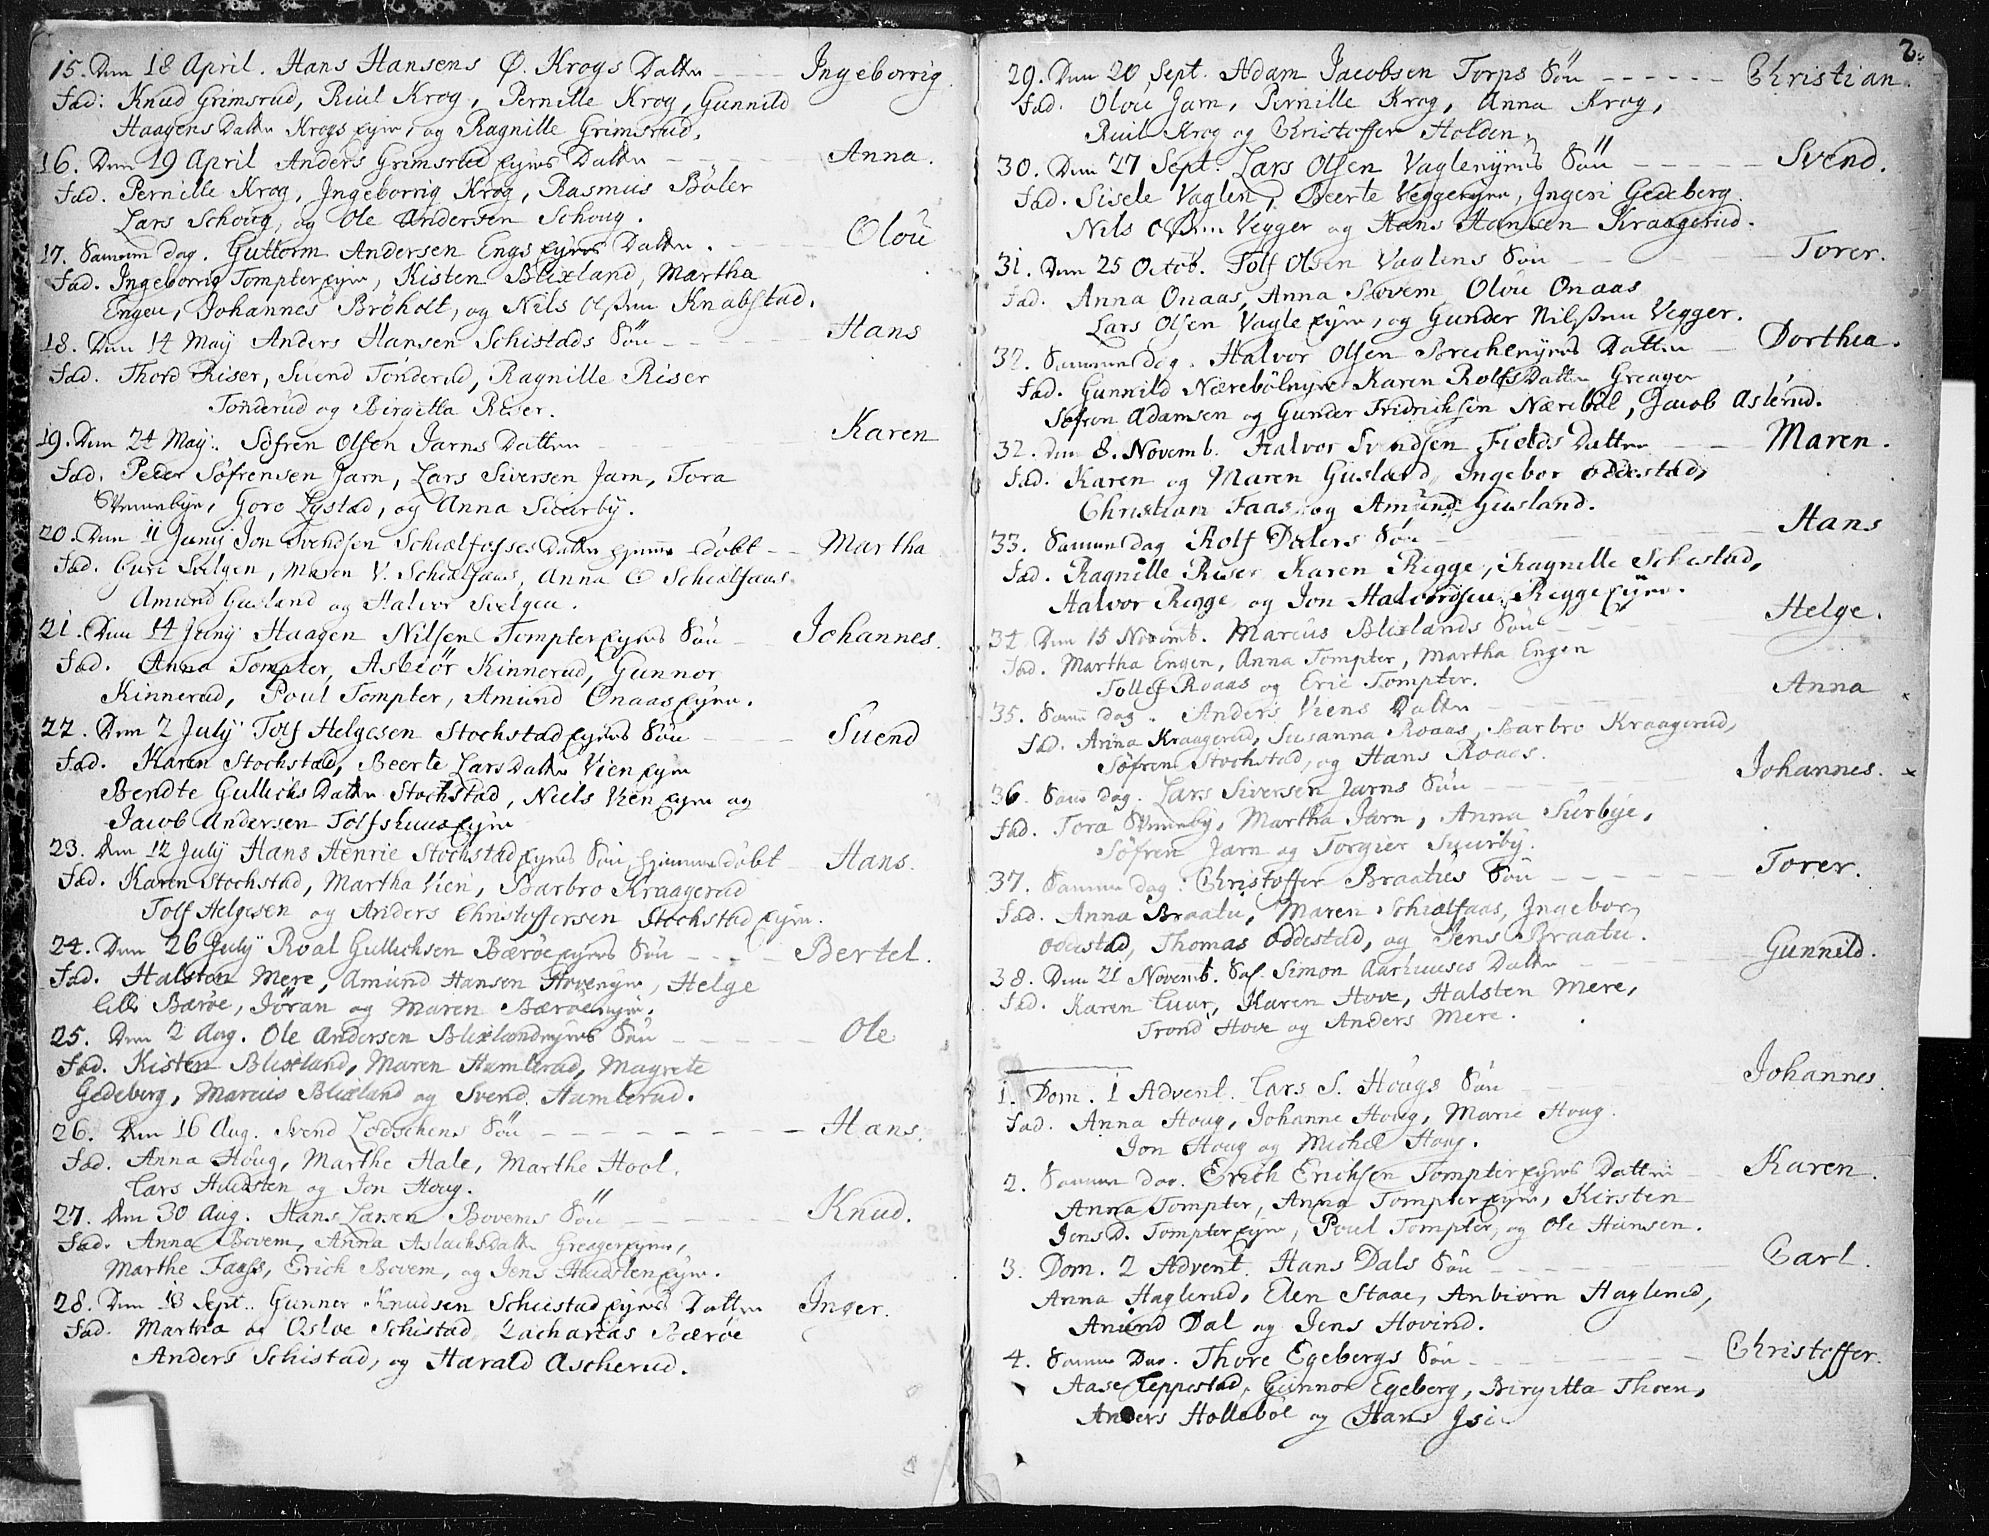 15. Den 18 April. Hans Hansens Ø. Krogs Datter - - - Ingeborrig.
Fad: Knud Grimsrud, Ruul Krog, Pernille Krog, Gunnild
Haagens Datter Krogs Eyer, og Ragnille Grimsrud.
16. Den 19 April Anders Grimsrud Eyers Datter - - - Anna.
Fad. Pernille Krog, Ingeborrig Krog, Rasmus Böler
Lars Schoug, og Ole Andersen Schoug.
17. Samme dag. Guttorm Andersen Engs Eyers Datter. - - Olou
Fad. Ingeborrig Tompter Eyer, Kisten Blixland, Martha
Engen, Johannes Bröholt, og Nils Olssen Knabstad.
18. Den 14 Maÿ Anders Hansen Schistads Sön - - - Hans
Fad. Thord Riser, Suend Tönderud, Ragnille Riser
Tönderud og Birgitta Riser.
19. Den 24 Maÿ. Söfren Olsen Jarns Datter - - Karen
Fad. Peder Söfrensen Jarn, Lars Siversen Jarn, Tora
Goro Lystad, og Anna Suurby.
20. Den 11 Junij Jon Svendsen Schiælfosses Datter hjemme döbt - - Martha
Fad. Guri Svelgen, Maren V. Schiælfaas, Anna Ø Schiælfaas
Amund Gusland og Halvor Svelgen.
21. Den 14 Junij Haagen Nilsen Tompter Eyers Sön - - Johannes.
Fad. Anna Tompter, Asbiör Kinnerud, Gunnor
Kinnerud, Poul Tompter, Amund Onaas Eyer.
22. Den 2 Julÿ Tolf Helgesen Stochstad Eyers Sön - - - Suend
Fad. Karen Stochstad, Beerte Lars Datter Vien Eyer
Bendte Gullichs Datter Stochstad, Niels Vien Eyer og
Jacob Andersen Tolfshuus Eyer
23. Den 12 Julÿ Hans Henric Stochstad Eyers Sön hjemme döbt Hans.
Fad. Karen Stochstad, Martha Vien, Barbro Kraagerud
Tolf Helgesen og Anders Christoffersen Stochstad Eyer.
24. Den 26 Julÿ Roal Gullichsen Bæröe Eyers Sön - - - Bertel.
Fad. Halsten Mere, Amund Hansen Hoveneyer, Helge
Lille Bæröe, Jöran og Maren Bæröeneyer.
25. Den 2 Aug. Ole Andersen Blixlandeyers Sön - - - Ole
Fad. Kisten Blixland, Maren Humlerud, Magrete
Gedeberg, Marcus Blixland og Svend Humlerud.
26. Den 16 Aug. Svend Lodschens Sön - - - Hans.
Fad. Anna Houg, Marthe Hale, Marthe Hool.
Lars Huusten og Jon Houg.
27. Den 30 Aug. Hans Larsen Bovems Sön - - - Knud.
Fad. Anna Bovem, Anna Aslachs Datter Greager Eyer,
Marthe Faass, Erich Bovem, og Jens Huusten Eyer.
28. Den 18 Sept. Gunner Knudsen Schiestad Eyers Datter Inger.
Fad. Martha og Osloe Schistad, Zacharias Bæröe
Anders Schistad, og Harald Ascherud.
2.
29. Den 20 Sept. Adam Jacobsen Torps Sön - - - Christian.
Fad. Olou Jarn, Pernille Krog, Anna Krog,
Ruul Krog og Christoffer Holden.
30. Den 27 Sept. Lars Olsen Vagleneyers Sön - - - Svend.
Fad. Sisele Vaglen, Beerte Veggereyer, Ingeri Gedeberg
Nils Olssen Vegger og Hans Hansen Kraagerud.
31. Den 25 Octob. Tolf Olsen Vaglens Sön - - - Torer.
Fad. Anna Onaas, Anna Bovem, Olou Onaas
Lars Olsen Vagle Eyer, og Gunder Nilssen Vegger.
32. Samme dag. Halvor Olsen Brecheneyers Datter - Dorthea.
Fad. Gunnild Nærebölneyer Karen Rolfs Datter Greager
Söfren Adamsen og Gunder Fridrichsen Nærebøl, Jacob Aslerud.
32. den 8. Novemb. Halvor Svendsen Fields Datter - - Maren.
Fad. Karen og Maren Gusland, Ingebor Oddestad,
Christian Faas og Amund Gusland.
33. Samme dag Rolf Dælers Sön - - - Hans
Fad. Ragnille Riser Karen Rigge, Ragnille Schistad,
Halvor Rigge og Jon Halvordsen Rigge Eyer.
34. Den 15 Novemb. Marcus Blixlands Sön - - - Helge.
Fad. Martha Engen, Anna Tompter, Martha Engen
Tollef Roaas og Eric Tompter.
35. Samme dag. Anders Viens Datter - - - Anna
Fad. Anna Kraagerud, Susanna Roaas, Barbro Kraagerud,
Söfren Stochstad, og Hans Roaas.
36. Samme dag. Lars Siversen Jarns Sön - - - Johannes.
Fad. Tora Martha Jarn, Anna Surbye,
Söfren Jarn og Torgier Suurby.
37. Samme dag. Christoffer Braatues Sön - - - Torer.
Fad. Anna Braatu, Maren Schiælfaas, Ingebor
Oddestad, Thomas Oddestad, og Jens Braatu.
38. Den 21 Novemb. Sal. Simon Aarhuuses Datter - - - Gunnild.
Fad. Karen Cuur, Karen Hove, Halsten Mere,
Trond Hove og Anders Mere.
1. Dom. 1 Advent. Lars S. Hougs Sön Johannes.
Fad. Anna Houg, Johanne Houg, Marie Houg.
Jon Houg og Michel Houg.
2. Samme dag. Erich Erichsen Tompter Eyers Datter - Karen.
Anna Tompter, Anna Tompter Eyer, Kirsten
Jens D. Tompter Eyer, Poul Tompter, og Ole Hansen.
3. Dom. 2 Advent. Hans Dals Sön - - - Carl.
Anna Haglerud, Elen Staae, Anbiorn Haglerud,
Amund Dal og Jens Hovind.
4. Samme Dag. Thore Egebergs Sön - - - Christoffer.
Aase Teppestad, Gunnor Egeberg, Birgitta Thoen,
Anders Holleböl og Hans